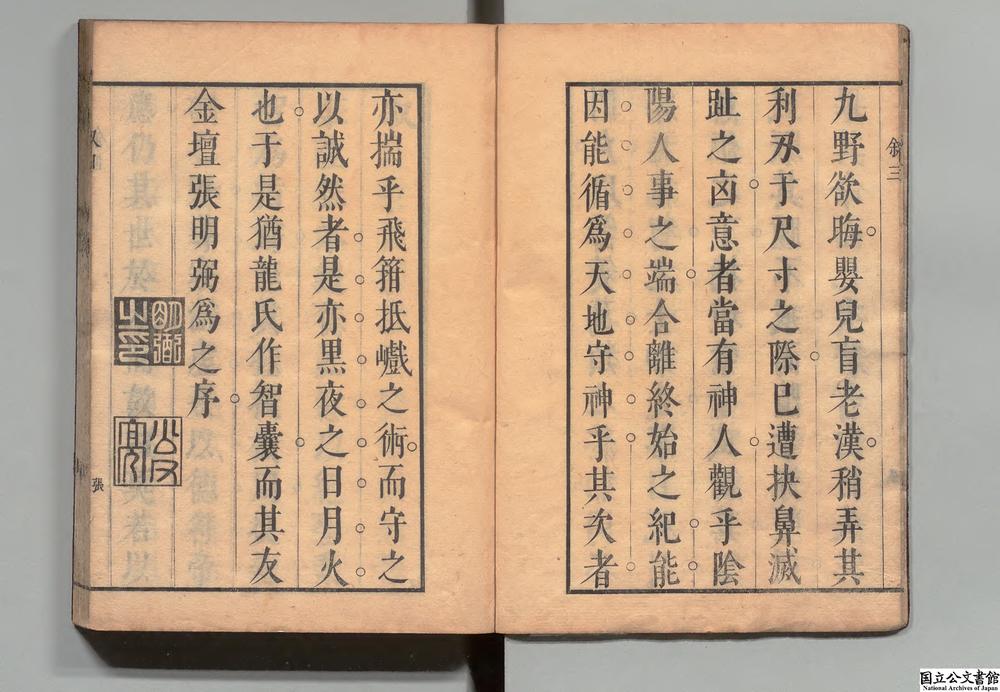 叙三
九野欲晦嬰兒盲老漢稍弄其
利刃于尺寸之際已遭抉鼻滅
趾之凶意者當有神人觀乎陰
陽人事之端合離終始之紀能
因能循爲天地守神乎其次者
亦揣乎飛箝抵巇之術而守之
以誠然者是亦黑夜之日月火
也于是猶龍氏作智囊而其友
金壇張明弼爲之序
明弼之印
公亮
張
国立公文書館
National Archives of Japan